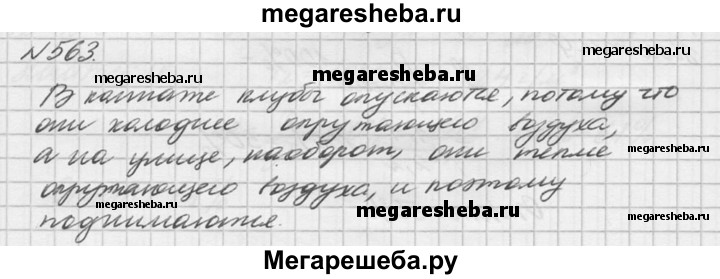 megaresheba.ru
№563.
megaresheba.ru
В комнате клубы опускаются, потому что
они холоднее окружающего воздуха,
а на улице, наоборот, они теплее
megaresheba.ru
megaresheba.ru
окружающего воздуха, и поэтому
поднимаются.
megaresheba.ru
megaresheba.ru
Мегарешеба.ру